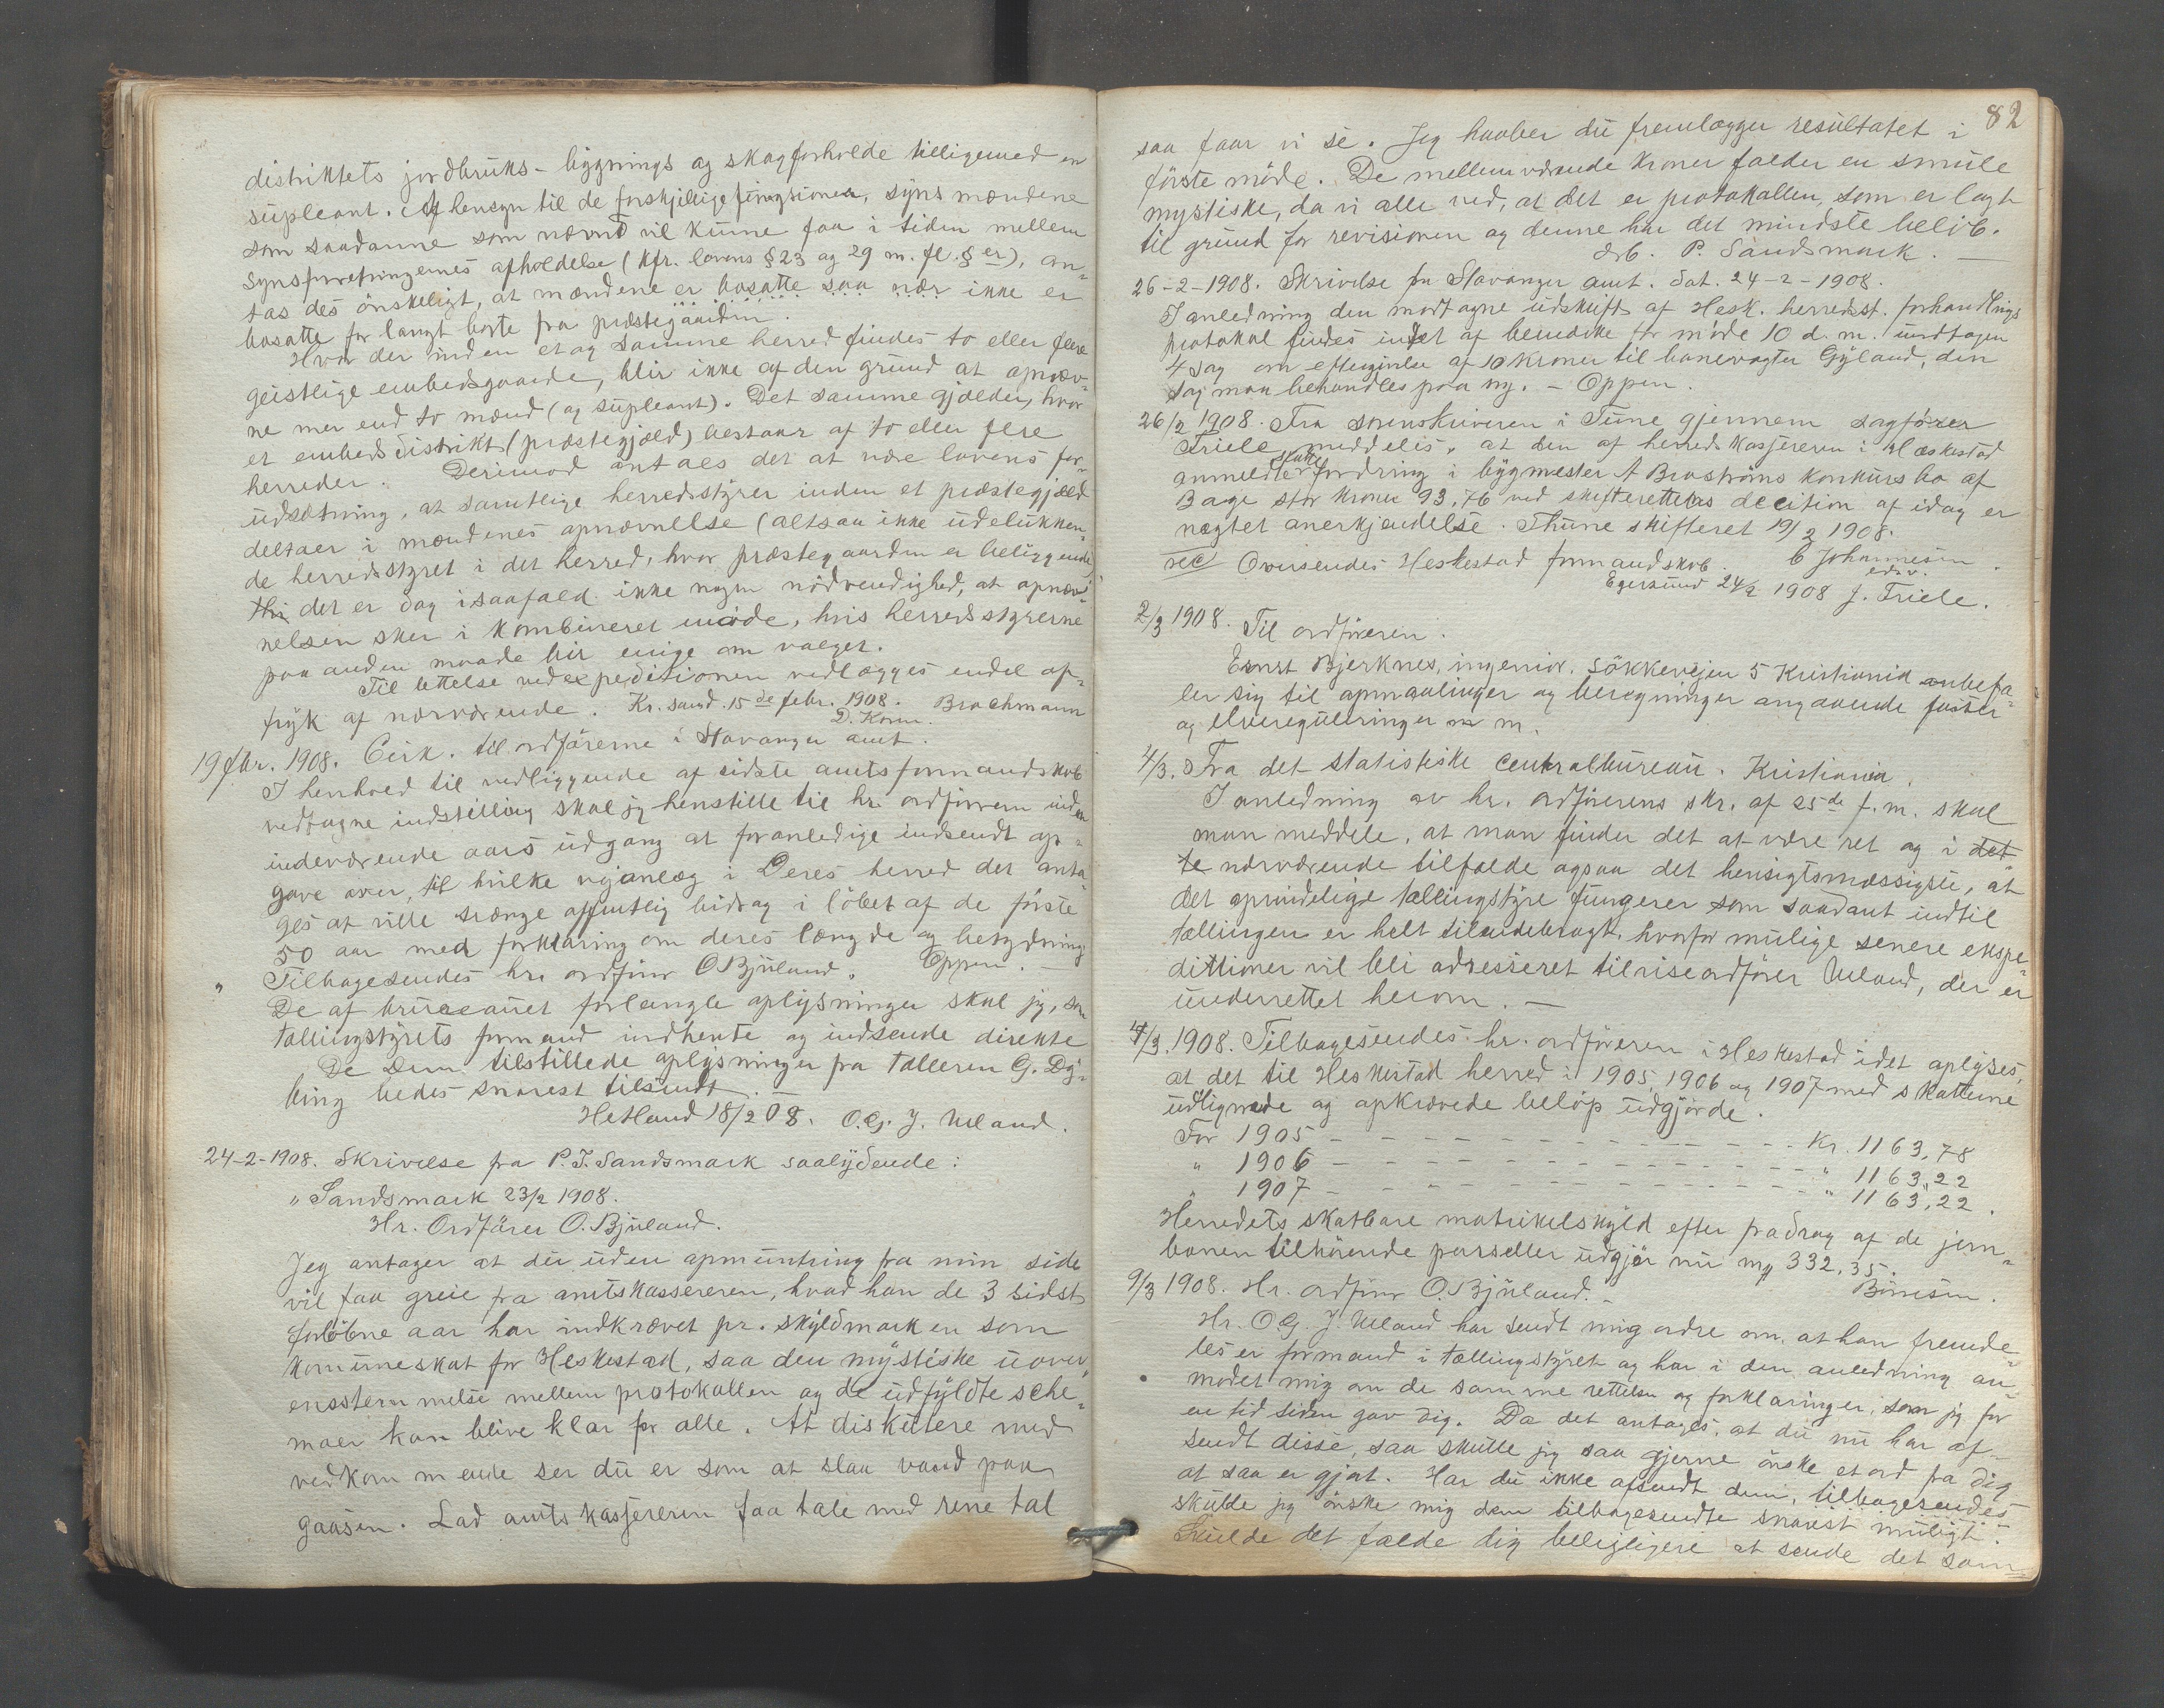 distriktets jordbruks- bygnings og skogforholde tilligemed en
supleant. Af hensyn til de forskjellige fungsioner, synsmændene
som saadanne som nævnt vil kunne faa i tiden mellem
synsforretningernes afholdelse (kfr. lovens § 23 og 29 m. fl. § er), an-
tas des önskeligt, at mændene er bosatte saa nær ikke er
bosatte for langt borte fra præstegaarden.
Hvor der inden et og samme herred findes to eller flere
geistlige embedsgaarde, blir ikke af den grund at opnæv-
ne mer end to mænd (og supleant). Det samme gjælder, hvor
et embedsdistrikt (præstegjæld) bestaar af to eller flere
herreder. Derimod antaes det at være lovens for-
udsætning, at samtlige herredsstyrer inden et præstegjæld
deltaer i mændenes opnævnelse (altsaa ikke udelukken-
de herredsstyret i det herred, hvor præstegaarden er beliggende
thi det er dog isaafald ikke nogen nödvendighed, at opnæv-
nelsen sker i kombineret möde, hvis herredsstyrerne
paa anden maade blir enige om valget.
Til lettelse ved expeditionen vedlægges endel af-
tryk af nærværende. Kr.sand. 15de febr. 1908. Brochmann
D. Konn.
19 fbr. 1908. Cirk. til ordförerne i Stavanger amt.
I henhold til vedliggende af sidste amtsformandskab
vedtagne indstilling skal jeg henstille til hr. ordföreren inden
indeværende aars udgang at foranledige indsendt op-
gave over, til hvilke vejanlæg i Deres herred det anta-
ges at ville trænge offentlig bidrag i löbet af de förste
50 aar med forklaring om deres længde og betydning
" Tilbagesendes hr. ordförer O Bjuland. Oppen. —
De af bureauet forlangte oplysninger skal jeg, som
tællingstyrets formand indhente og indsende direkte
De Dem tilstillede oplysninger fra tælleren G. Dy-
bing bedes snarest tilsendt.
Hetland 18/2 08. O.G. J. Ueland.
24-2-1908. Skrivelse fra P. T. Sandsmark saalydende:
" Sandsmark 23/2 1908.
Hr. Ordförer O. Bjuland.
Jeg antager at du uden opmuntring fra min side
vil faa greie fra amtskassereren, hvad han de 3 sidst
forlöbne aar har indkrævet pr. skyldmarken som
komuneskat for Heskestad, saa den mystiske uover-
ensstemmelse mellem protokollen og de udfyldte sche-
maer kan blive klar for alle. At diskutere med
vedkommende ser du er som at slaa vand paa
gaasen. Lad amtskasjereren faa tale med rene tal
82
saa faar vi se. Jeg haaber du fremlægger resultatet i
förste möde. De mellemværende kroner falder en smule
mystiske, da vi alle ved, at det er protokollen, som er lagt
til grund for revisionen og denne har det mindste belöb.
Drb. P. Sandsmark. —
26-2-1908. Skrivelse fra Stavanger amt. dat. 24-2-1908.
I anledning den modtagne udskrift af Hesk. herredsst. forhandlings
protokol findes intet at bemærke for möde 10 d. m. undtagen
4 sag om eftergivelse af 10 kroner til banevogter Gyland, den
sag maa behandles paa ny. — Oppen.
26/2 1908. Fra sorenskriveren i Tune gjennem sagförer
Friele meddeles, at den af herredskasjereren i Heskestad
anmeldte skattefordring i bygmester A Broströms konkursbo af
Bage stor kroner 93,76 ved skifterettens decition af idag er
nægtet anerkjendelse. Thune skifteret 19/2 1908.
C Johannesen
edsv.
Oversendes Heskestad formandskab.
Egersund 24/2 1908 J. Friele.
2/3 1908. Til ordföreren.
Ernst Bjerknes, ingeniör. Sökkevejen 5 Kristiania anbefa-
ler sig til opmaalinger og beregninger angaaende fosser
og elvereguleringer m m.
4/3. Fra det statistiske centralbureau. Kristiania.
I anledning av hr. ordförerens skr. af 25de f. m. skal
man meddele, at man finder det at være ret og i det
te nærværende tilfælde ogsaa det hensigtsmæssigste, at
det oprindelige tællingstyre fungerer som saadant indtil
tællingen er helt tilendebragt, hvorfor mulige senere ekspe-
ditioner vil bli adresseret til viseordförer Ueland, der er
underrettet herom. —
4/3. 1908. Tilbagesendes hr. ordföreren i Heskestad idet oplyses,
at det til Heskestad herred i 1905, 1906 og 1907 med skatterne
udlignede og opkrævede belöp udgjorde.
For 1905 — — — — — — — — — — Kr. 1163,78
" 1906 — — — — — — — — — — " 1163,22
" 1907 — — — — — — — — — — " 1163,22.
Herredets skatbare matrikelskyld efter fradrag af de jern-
banen tilhörende parseller udgjör nu my 332,35.
Bönesen.
9/3 1908. Hr. ordförer O. Bjuland. —
Hr. O.G. J. Ueland har sendt mig ordre om, at han fremde-
les er formand i tællingstyret og har i den anledning an-
modet mig om de samme rettelser og forklaringer, som jeg for
en tid siden gav dig. Da det antages, at du nu har af-
sendt disse, saa skulle jeg saa gjerne önske et ord fra dig
at saa er gjort. Har du ikke afsendt dem, tilbagesendes
skulde jeg önske mig dem tilbagesendte snarest muligt.
Skulde det falde dig beleiligere at sende det som